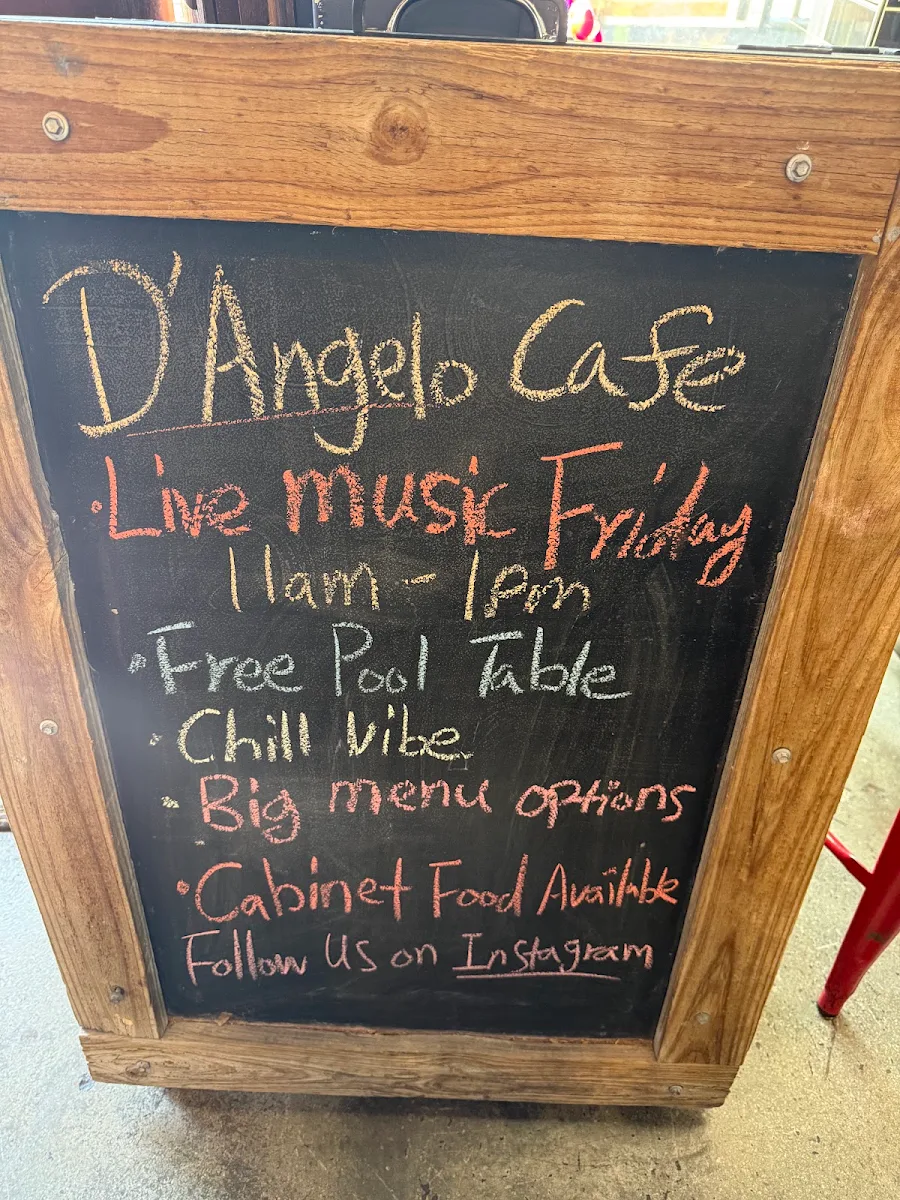 D'Angelo Cafe
· Live music Friday
11am - 1pm
· Free Pool Table
· Chill Vibe
· Big menu options
· Cabinet Food Available
Follow Us on Instagram